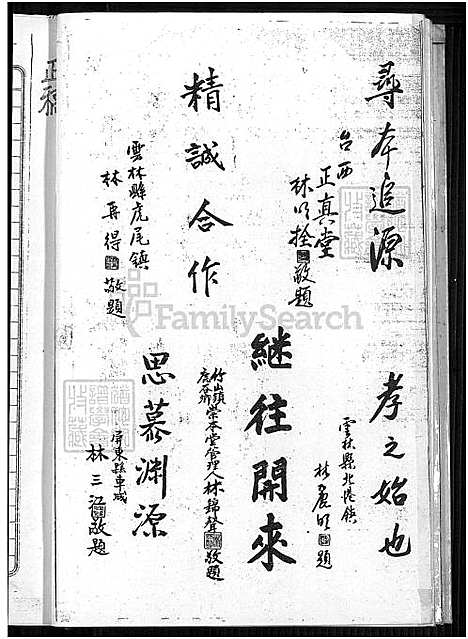 尋本追源
台西
正真堂
林以拴敬題
孝之始也
雲林縣北港鎮
林辰明題
精誠合作
雲林縣虎尾鎮
林再得敬題
継往開來
竹山頭
崇本堂管理人林錦聲敬題
思慕淵源
屏東縣車城
林三江敬題
正稿
FamilySearch